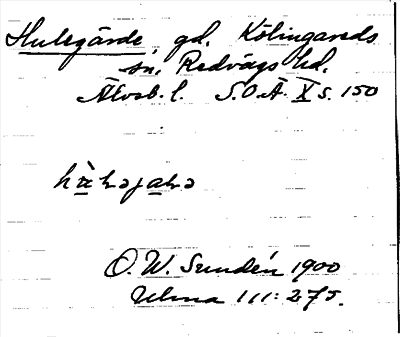 Hulegärde, gd. Kölingareds
sn, Redvägs hd.
Älvsb. l. S.O.Ä. X s. 150
O. W. Sundén 1900
Ulma 111:275.